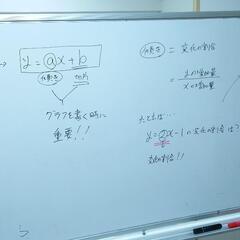 y = ax + b
傾き
切片
グラフを書く時に
重要!!
傾き = 変化の割合
= yの増加量 / xの増加量
たとえば…
y=2x-1の変化の割合は?
変化の割合!!